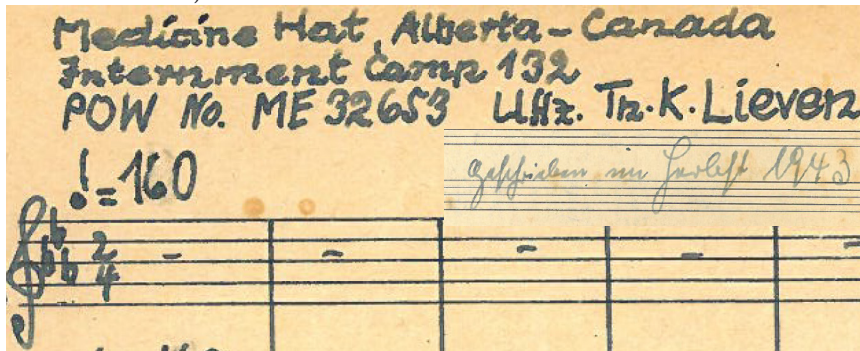 Medicine Hat, Alberta – Canada
Internment Camp 132
POW No. ME 32653 Uffz. Tr. K. Lieven
geschrieben im Herbst 1943
♩=160
2/4